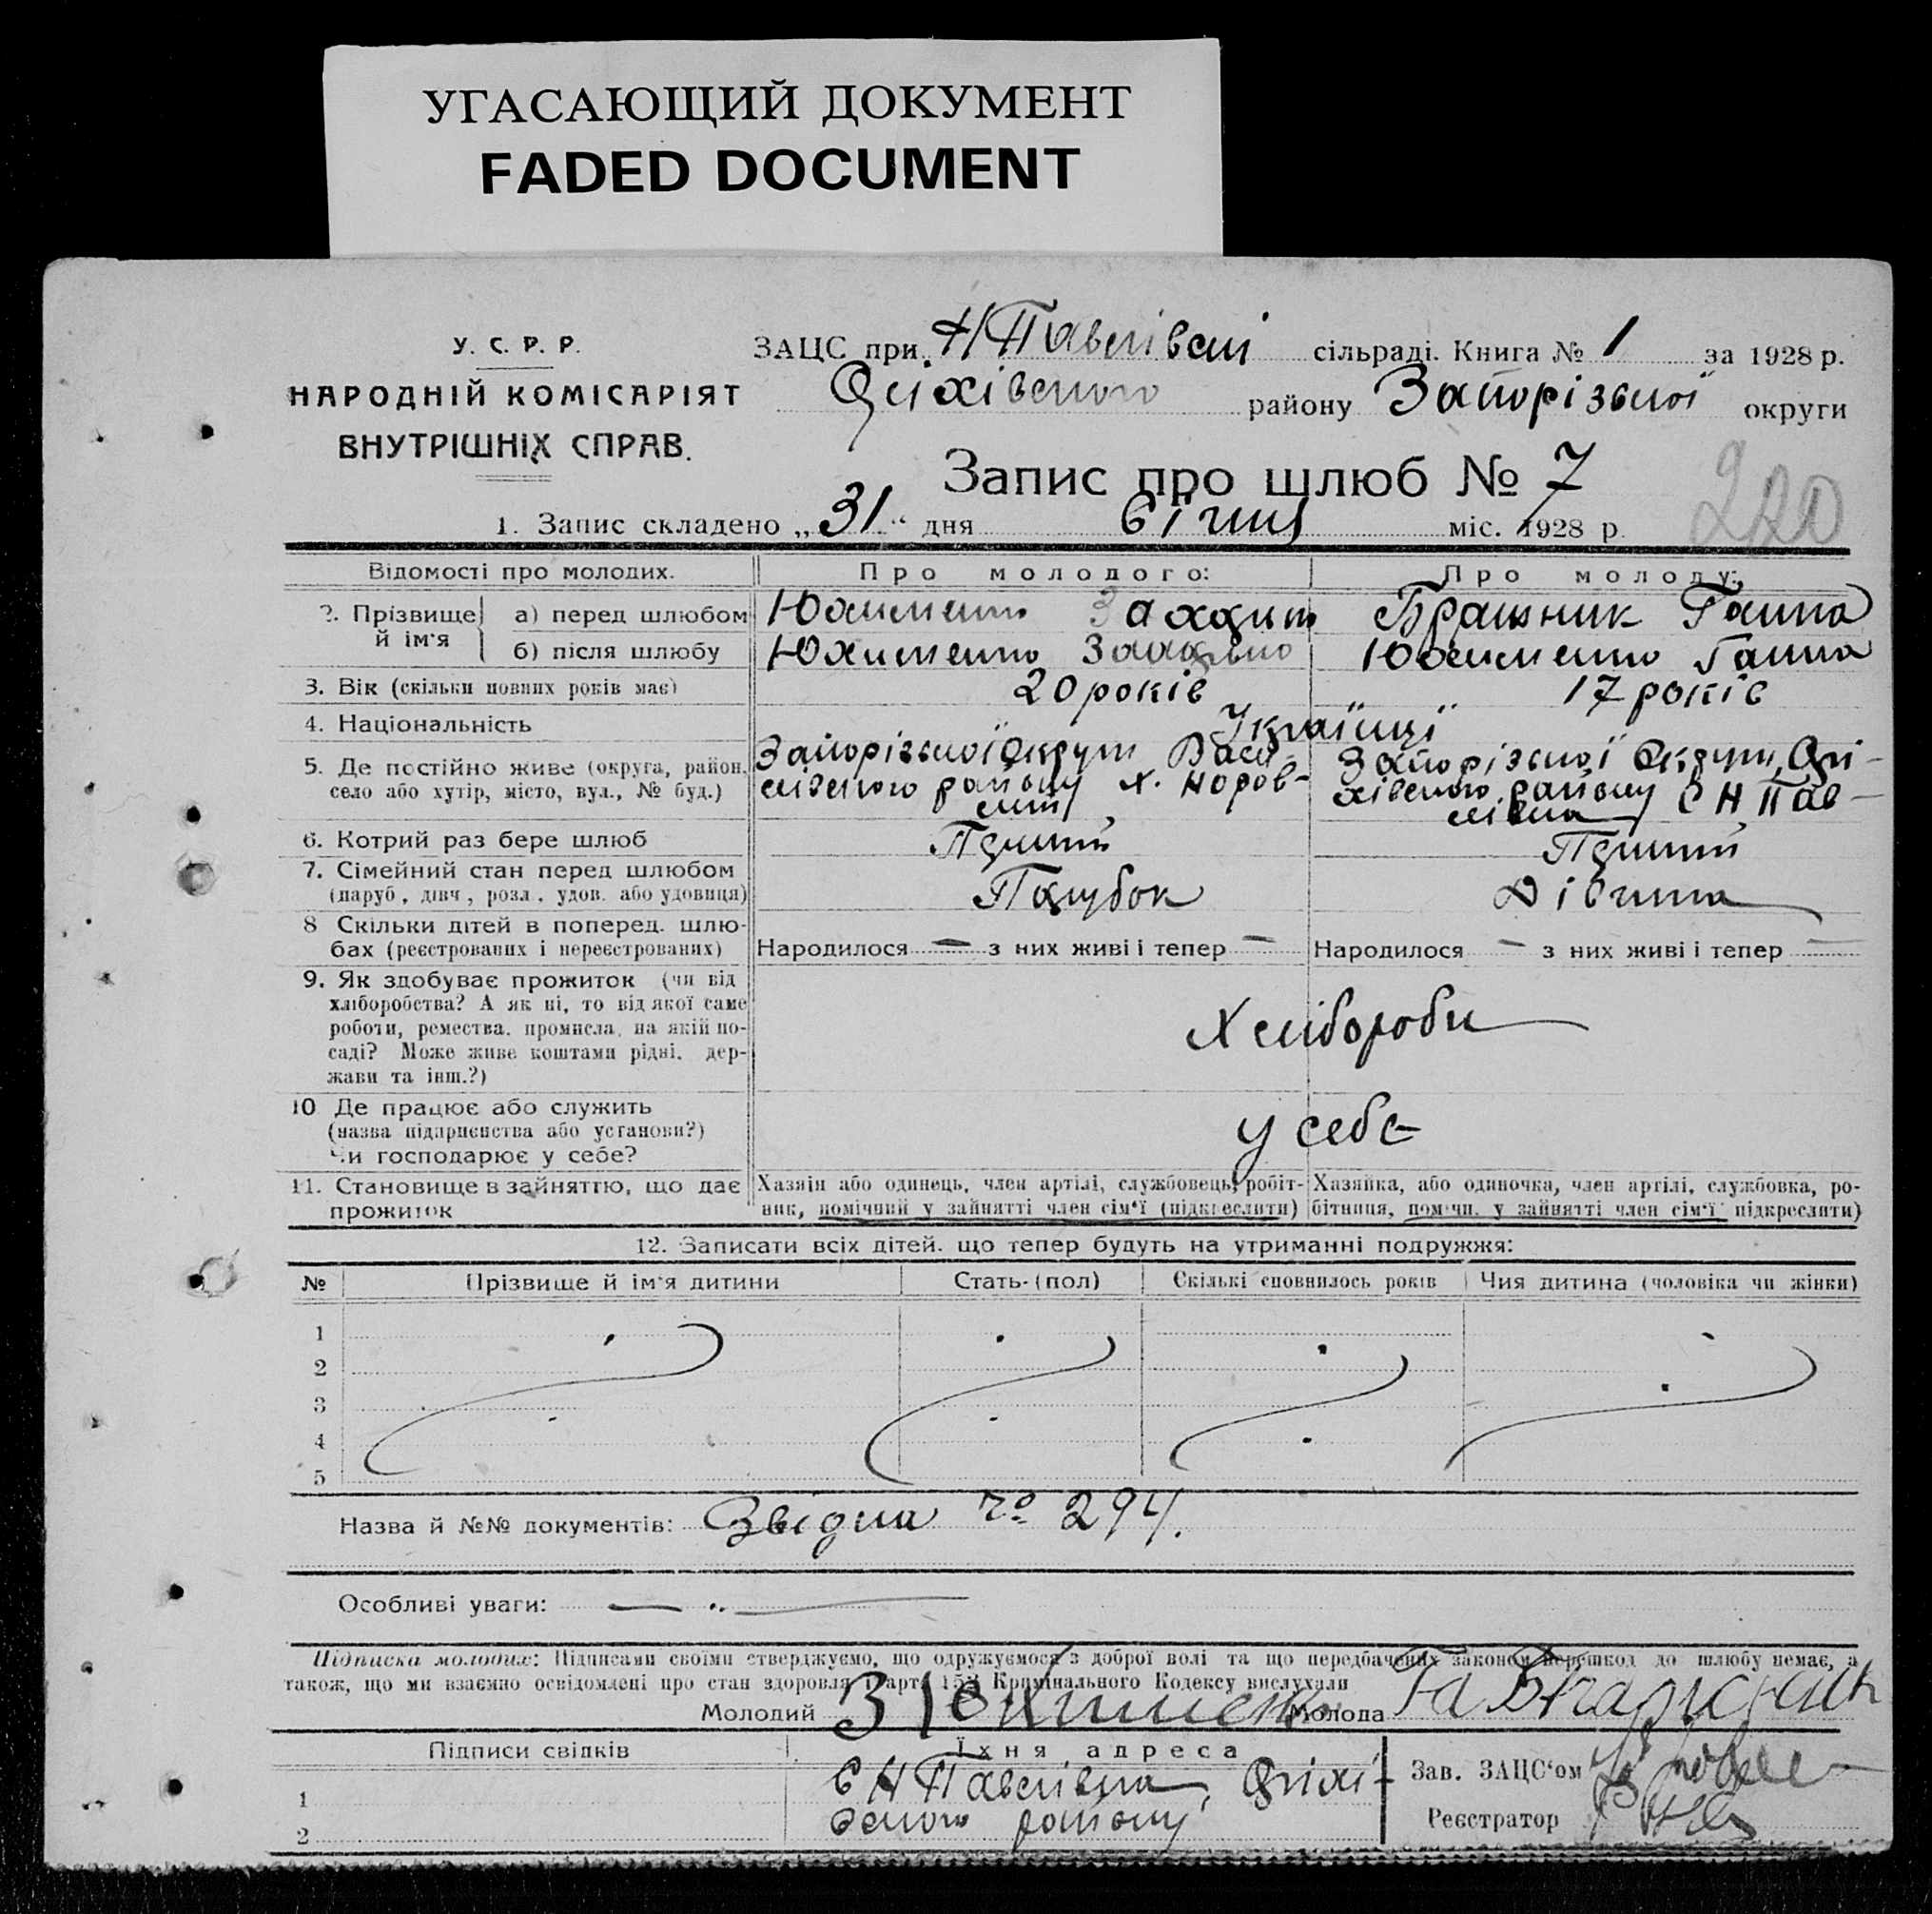 УГАСАЮЩИЙ ДОКУМЕНТ
FADED DOCUMENT
У. С. Р. Р.
НАРОДНІЙ КОМІСАРІЯТ
ВНУТРІШНІХ СПРАВ.
ЗАЦС при Н Павлівскі сільраді. Книга № 1 за 1928 р.
Оріхівського району Запорізької округи
Запис про шлюб № 7
220
1. Запис складено „31“ дня січня міс. 1928 р.
Відомості про молодих. Про молодого: Про молоду:
2. Прізвище й ім'я а) перед шлюбом Юхименко Брашник Ганна
б) після шлюбу Юхименко Юхименко Ганна
3. Вік (скільки повних років має) 20 років 17 років
4. Національність Українці
5. Де постійно живе (округа, район, село або хутір, місто, вул., № буд.) Запорізької Округи Васи-
лівського району х. Запорізької Округи, Орі-
хівського району С Н Пав-
лівка
6. Котрий раз бере шлюб Перший Перший
7. Сімейний стан перед шлюбом (паруб, дівч, розл, удов. або удовиця) Парубок Дівчина
8 Скільки дітей в поперед. шлюбах (реєстрованих і нереєстрованих) Народилося — з них живі і тепер — Народилося — з них живі і тепер —
9. Як здобуває прожиток (чи від
хліборобства? А як ні, то від якої саме
роботи, ремества, промисла, на якій по-
саді? Може живе коштами рідні, дер-
жави та інш.?)
Хлібороби
10 Де працює або служить
(назва підприєнства або установи?)
Чи господарює у себе?
у себе
11. Становище в зайняттю, що дає прожиток
Хазяїн або одинець, член артілі, службовець, робіт-
ник, помічний у зайнятті член сім'ї (підкреслити)
Хазяйка, або одиночка, член артілі, службовка, ро-
бітниця, помічн. у зайнятті член сім'ї підкреслити)
12. Записати всіх дітей, що тепер будуть на утриманні подружжя:
№ Прізвище й ім'я дитини Стать-(пол) Скількі сповнилось років Чия дитина (чоловіка чи жінки)
1
2
3
4
5
Назва й №№ документів: Звідка № 294.
Особливі уваги:
Підписка молодих: Підписами своїми стверджуємо, що одружуємося з доброї волі та що передбачених законом перешкод до шлюбу немає, а
також, що ми взаємно освідомлені про стан здоровля і арт. 155 Кримінального Кодексу вислухали
Молодий З Юхименко Молода Га
Підписи свідків Їхня адреса Зав. ЗАЦС'ом
1 С Н Павлівка, Оріхі-
2 вського району Реєстратор